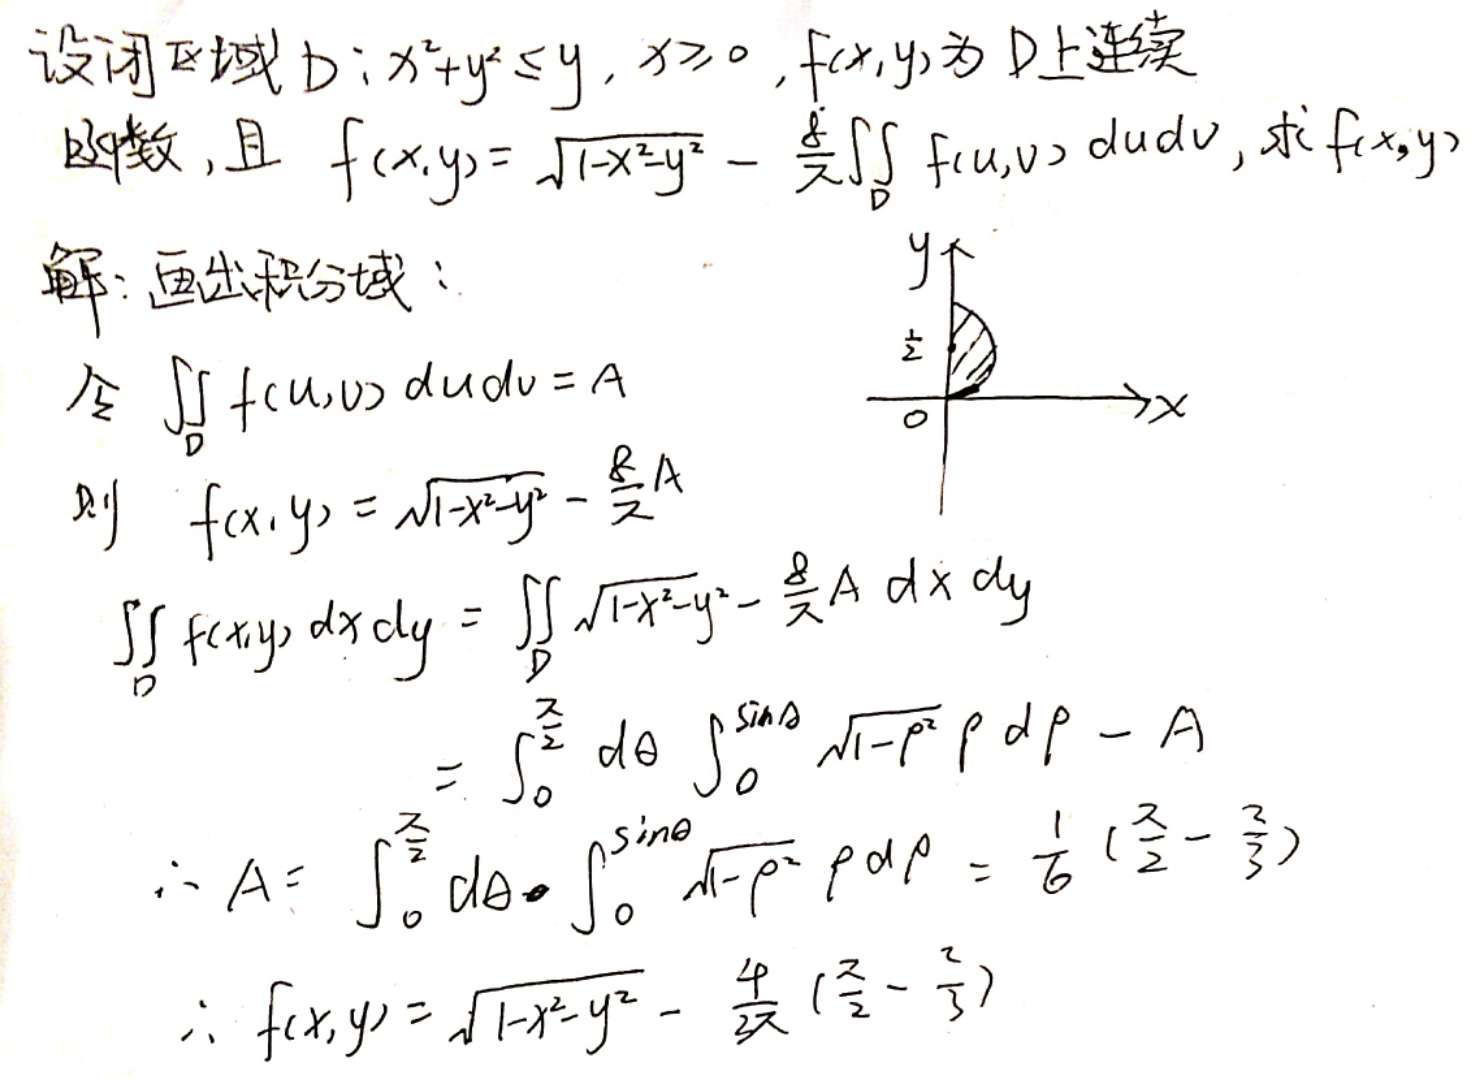 设闭区域 D：x²+y²≤y，x≥0，f(x,y)为D上连续
函数，且 f(x,y)=√(1-x²-y²) - 8/π ∬_D f(u,v) dudv，求f(x,y)
解：画出积分域：
y
1/2
0
x
令 ∬_D f(u,v) dudv = A
则 f(x,y) = √(1-x²-y²) - 8/π A
∬_D f(x,y) dxdy = ∬_D √(1-x²-y²) - 8/π A dx dy
= ∫_0^{π/2} dθ ∫_0^{sinθ} √(1-ρ²) ρ dρ - A
∴ A = ∫_0^{π/2} dθ · ∫_0^{sinθ} √(1-ρ²) ρ dρ = 1/6 (π/2 - 2/3)
∴ f(x,y) = √(1-x²-y²) - 4/3π (π/2 - 2/3)